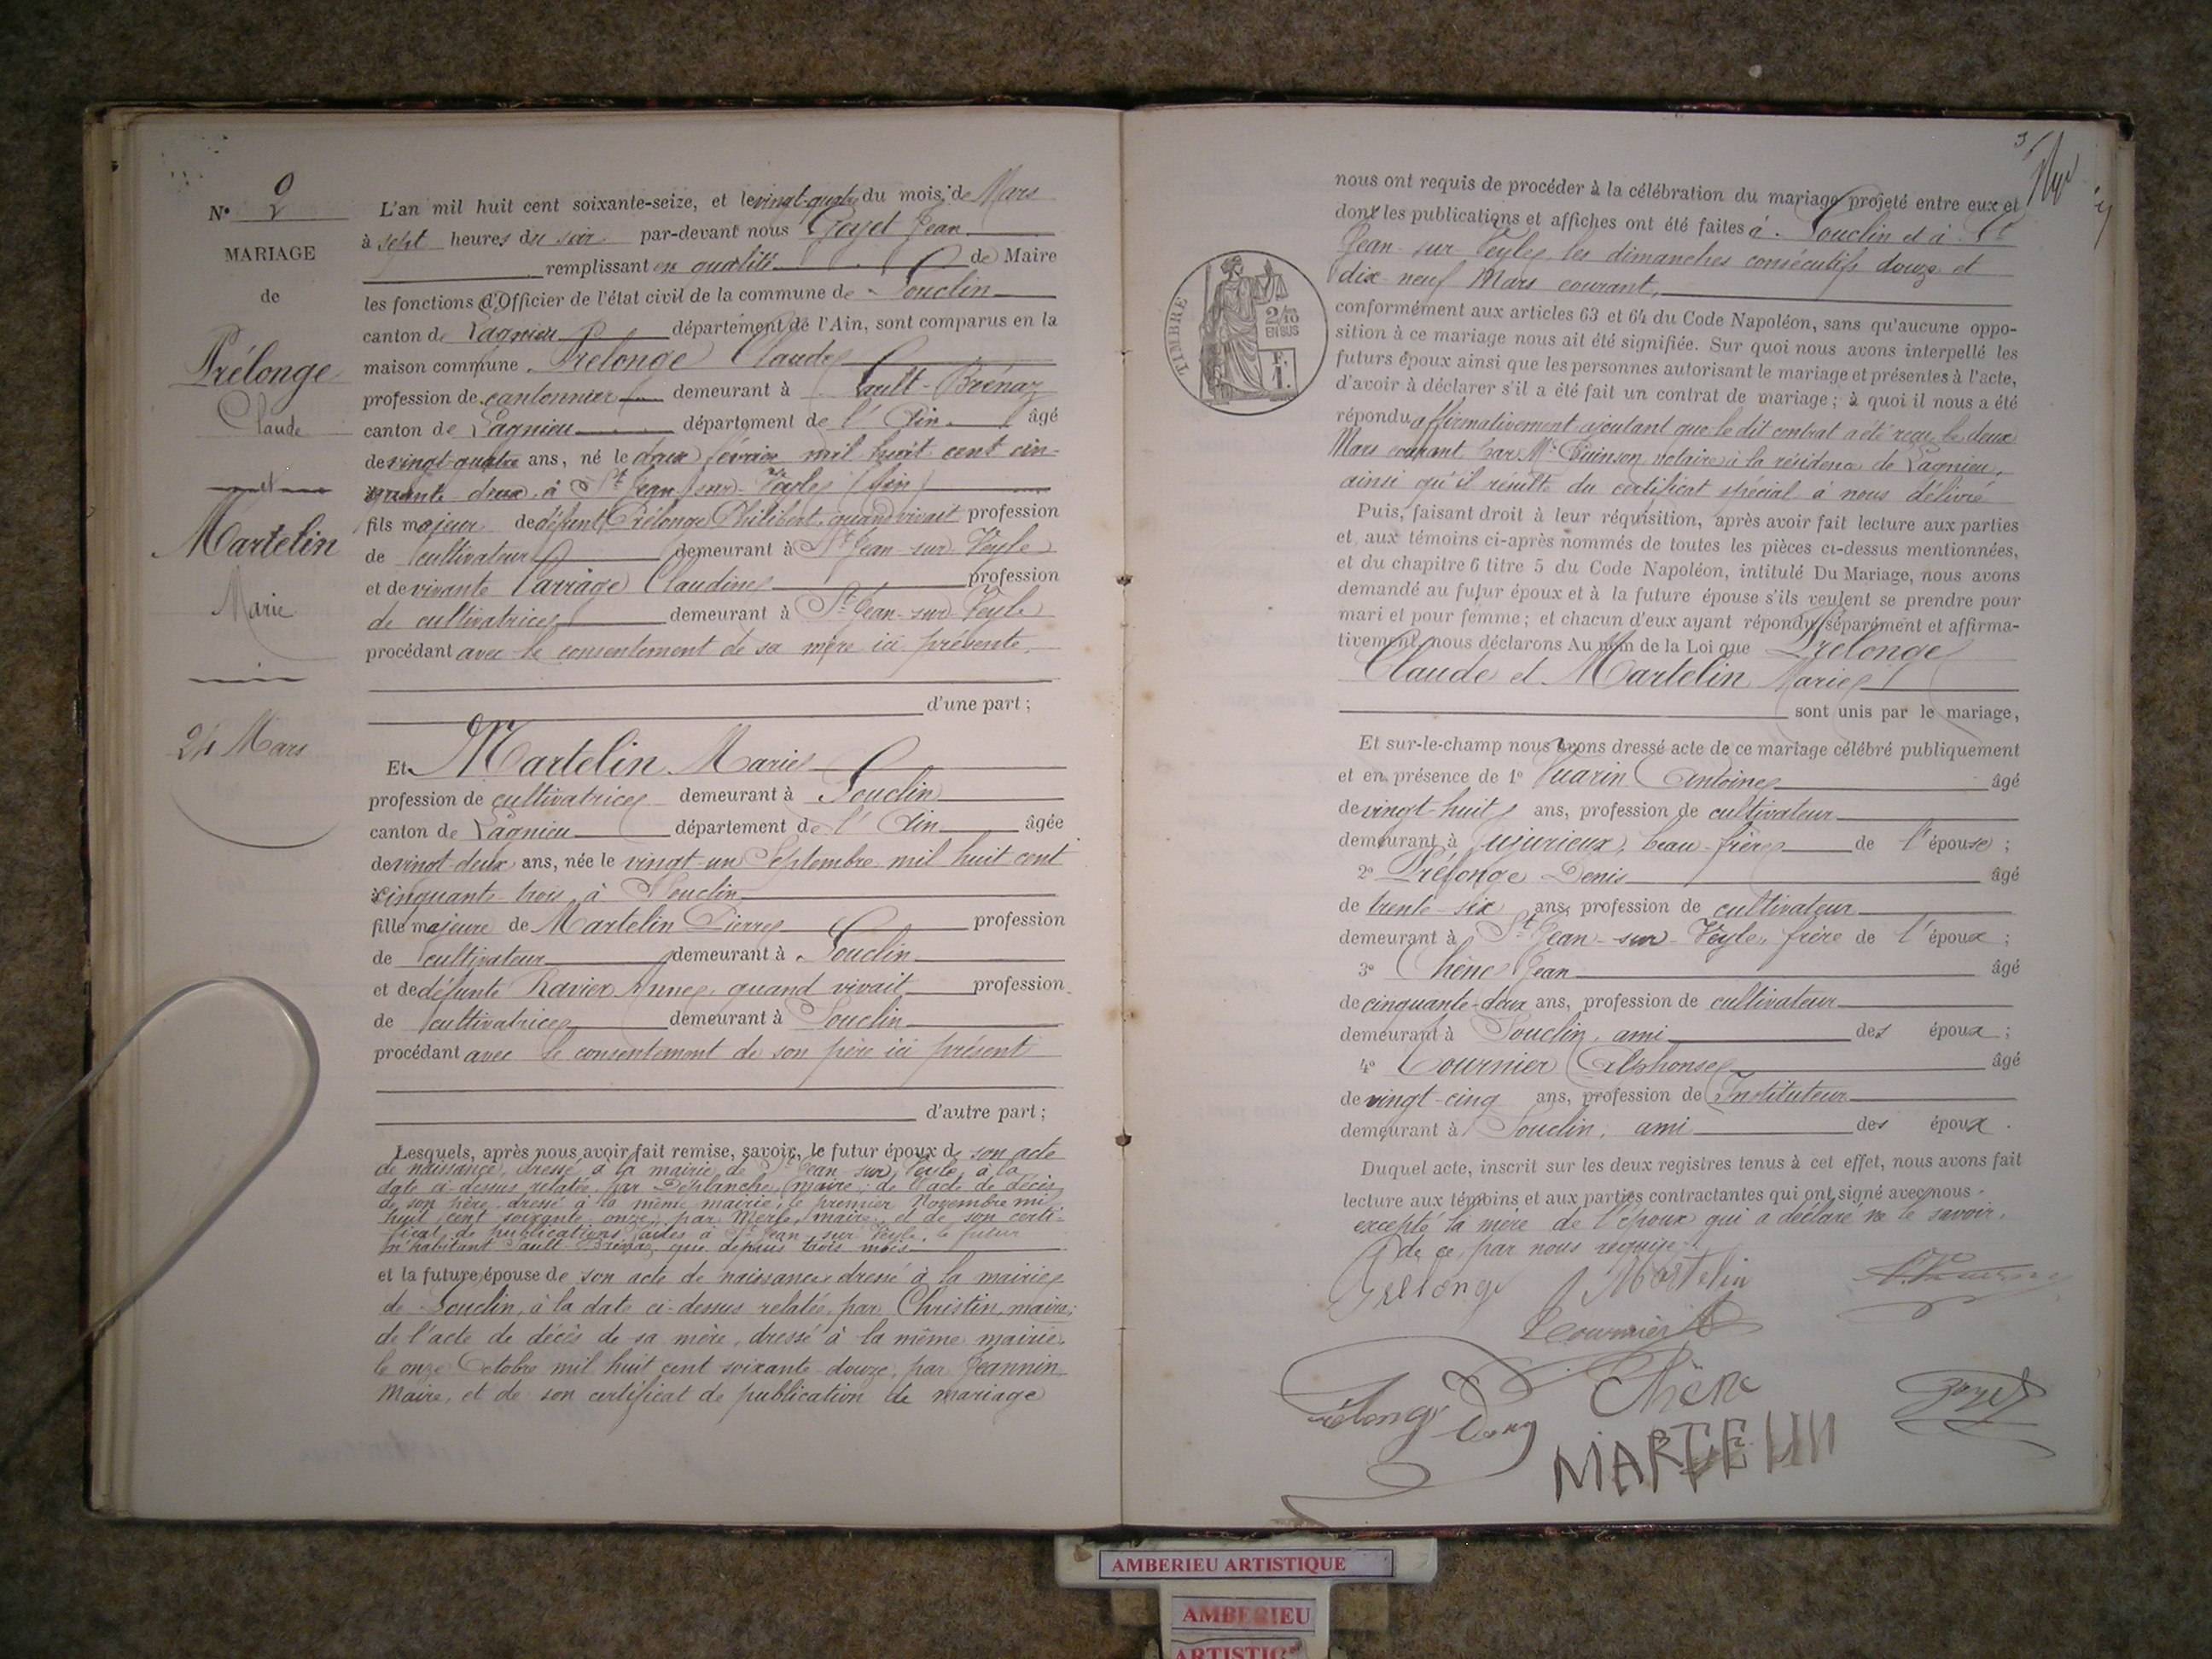 N° 2
MARIAGE
de
Prélonge
Claude
et
Martelin
Marie
24 Mars
L'an mil huit cent soixante-seize, et le vingt-quatre du mois de Mars
à sept heures du soir par-devant nous Goyet Jean
remplissant en qualité de Maire
les fonctions d'Officier de l'état civil de la commune de Souclin
canton de Lagnieu département de l'Ain, sont comparus en la
maison commune Prélonge Claude
profession de cantonnier demeurant à Sault-Brénaz
canton de Lagnieu département de l'Ain âgé
de vingt-quatre ans, né le deux février mil huit cent cin-
quante deux, à St Jean-sur-Veyle (Ain)
fils majeur de défunt Prélonge Philibert, quand vivait profession
de cultivateur demeurant à St Jean-sur-Veyle
et de vivante Carrage Claudine profession
de cultivatrice demeurant à St Jean-sur-Veyle
procédant avec le consentement de sa mère ici présente.
d'une part;
Et Martelin Marie
profession de cultivatrice demeurant à Souclin
canton de Lagnieu département de l'Ain âgée
de vingt-deux ans, née le vingt-un Septembre mil huit cent
cinquante trois à Souclin
fille majeure de Martelin Pierre profession
de cultivateur demeurant à Souclin
et de défunte Ravier quand vivait profession
de cultivatrice demeurant à Souclin
procédant avec le consentement de son père ici présent
d'autre part;
Lesquels, après nous avoir fait remise, savoir, le futur époux de son acte
de naissance, dressé à la mairie de St Jean sur Veyle, à la
date ci-dessus relatée par Desplanche, maire; de l'acte de décès
de son père dressé à la même mairie, le premier Novembre mil
huit cent soixante onze, par Merle, maire et de son certi-
ficat de publications faites à St Jean sur Veyle, le futur
n'habitant Sault-Brénaz que depuis trois mois
et la future épouse de son acte de naissance dressé à la mairie
de Souclin, à la date ci-dessus relatée, par Christin, maire;
de l'acte de décès de sa mère, dressé à la même mairie,
le onze Octobre mil huit cent soixante douze, par Jeannin
Maire, et de son certificat de publication de mariage
3
nous ont requis de procéder à la célébration du mariage projeté entre eux et
dont les publications et affiches ont été faites à Souclin et à St
Jean-sur-Veyle, les dimanches consécutifs douze et
dix-neuf Mars courant,
TIMBRE
2/10
EN SUS
F.
1.
conformément aux articles 63 et 64 du Code Napoléon, sans qu'aucune oppo-
sition à ce mariage nous ait été signifiée. Sur quoi nous avons interpellé les
futurs époux ainsi que les personnes autorisant le mariage et présentes à l'acte,
d'avoir à déclarer s'il a été fait un contrat de mariage; à quoi il nous a été
répondu affirmativement ajoutant que le dit contrat a été reçu le deux
Mars courant par Me notaire à la résidence de Lagnieu,
ainsi qu'il résulte du certificat spécial à nous délivré
Puis, faisant droit à leur réquisition, après avoir fait lecture aux parties
et aux témoins ci-après nommés de toutes les pièces ci-dessus mentionnées,
et du chapitre 6 titre 5 du Code Napoléon, intitulé Du Mariage, nous avons
demandé au futur époux et à la future épouse s'ils veulent se prendre pour
mari et pour femme; et chacun d'eux ayant répondu séparément et affirma-
tivement, nous déclarons Au nom de la Loi que Prélonge
Claude et Martelin Marie
sont unis par le mariage,
Et sur-le-champ nous avons dressé acte de ce mariage célébré publiquement
et en présence de 1° Vuarin Antoine âgé
de vingt-huit ans, profession de cultivateur
demeurant à Jujurieux, beau-frère de l'épouse;
2° Prélonge Denis âgé
de trente-six ans, profession de cultivateur
demeurant à St Jean-sur-Veyle, frère de l'époux;
3° Chêne Jean âgé
de cinquante-deux ans, profession de cultivateur
demeurant à Souclin, ami des époux;
4° Cournier Alphonse âgé
de vingt-cinq ans, profession de Instituteur
demeurant à Souclin, ami des époux.
Duquel acte, inscrit sur les deux registres tenus à cet effet, nous avons fait
lecture aux témoins et aux parties contractantes qui ont signé avec nous
excepté la mère de l'époux qui a déclaré ne le savoir,
de ce par nous requise.
Prelonge Martelin
Cournier A
Chêne
MARTELIN
AMBERIEU ARTISTIQUE
AMBERIEU
ARTISTIQ